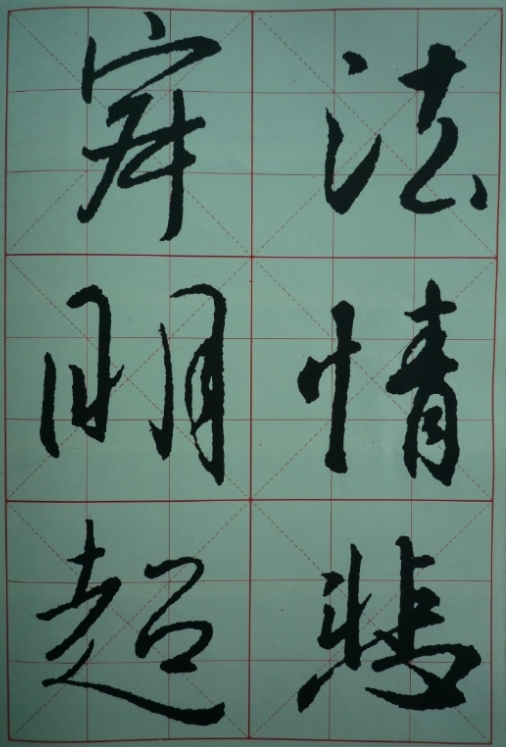 法情悲
明超